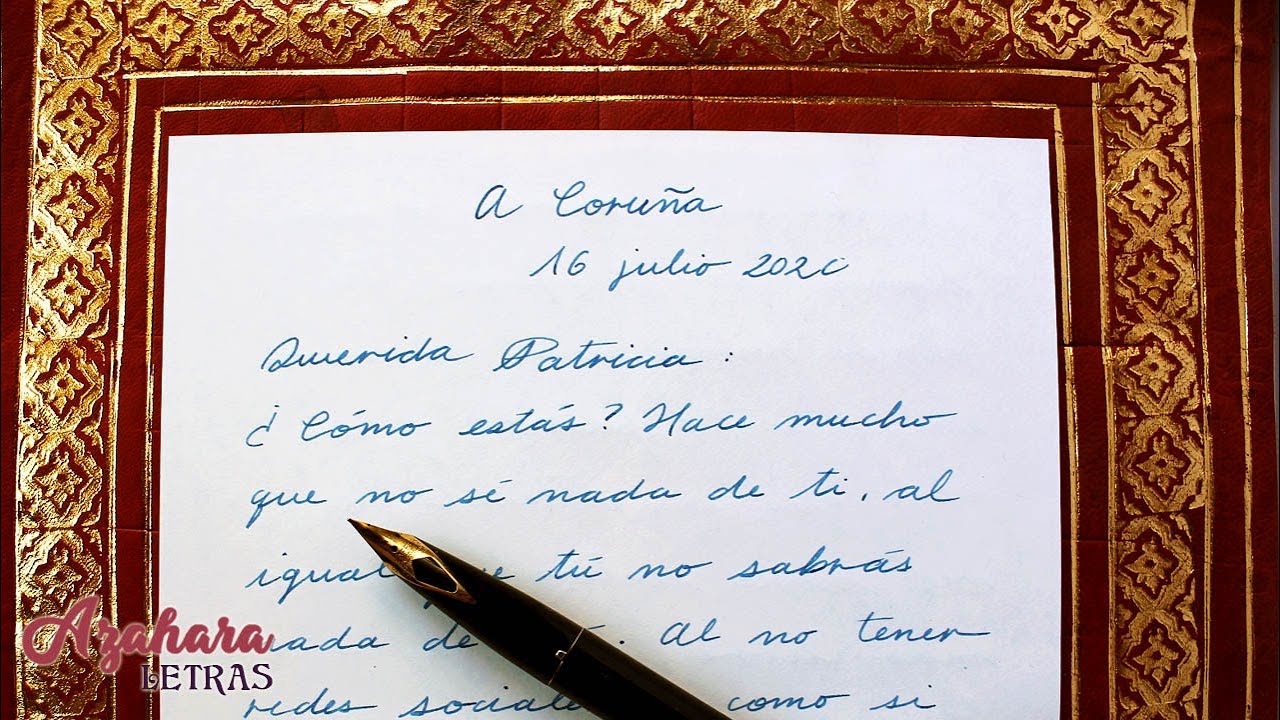 A Coruña
16 julio 2020
Querida Patricia:
¿Cómo estás? Hace mucho
que no sé nada de ti, al
igual tú no sabrás
nada de . Al no tener
redes como si
Azahara
LETRAS